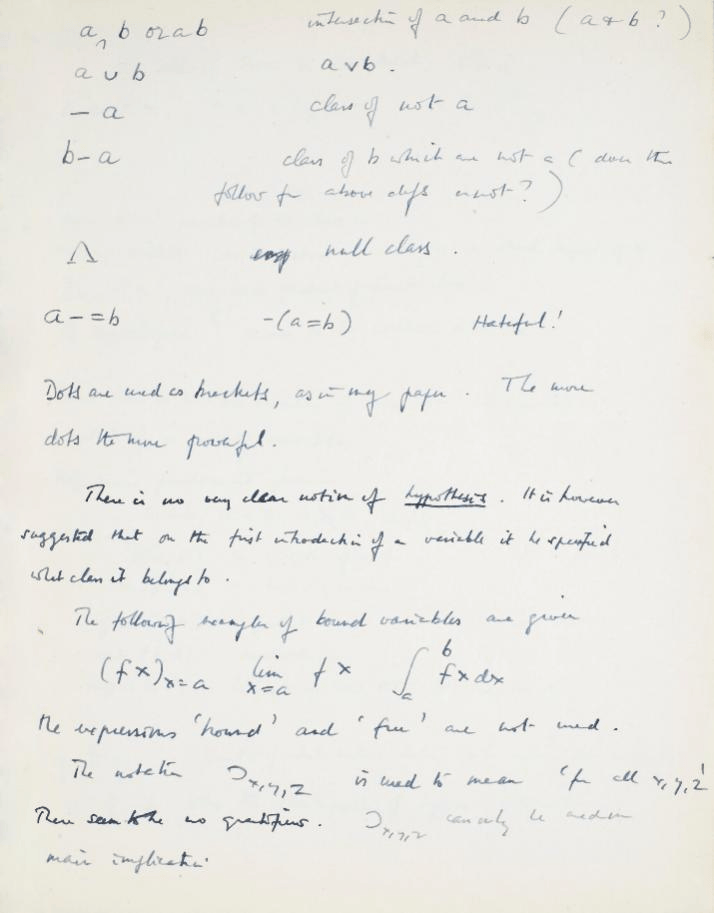 a ∩ b or ab    intersection of a and b (a & b ?)
a ∪ b    a v b.
– a    class of not a
b – a    class of b which are not a (does this
follow fr above defs or not?)
Λ    null class.
a – = b    –(a = b)    Hateful!
Dots are used as brackets, as in my paper. The more
dots the more powerful.
There is no very clear notion of hypothesis. It is however
suggested that on the first introduction of a variable it be specified
what class it belongs to.
The following examples of bound variables are given
(fx)x=a    lim x=a fx    ∫ₐᵇ fx dx
the expressions 'bound' and 'free' are not used.
The notation ⊃x,y,z is used to mean 'for all x,y,z'
There seem to be no quantifiers. ⊃x,y,z can only be used on
main implication